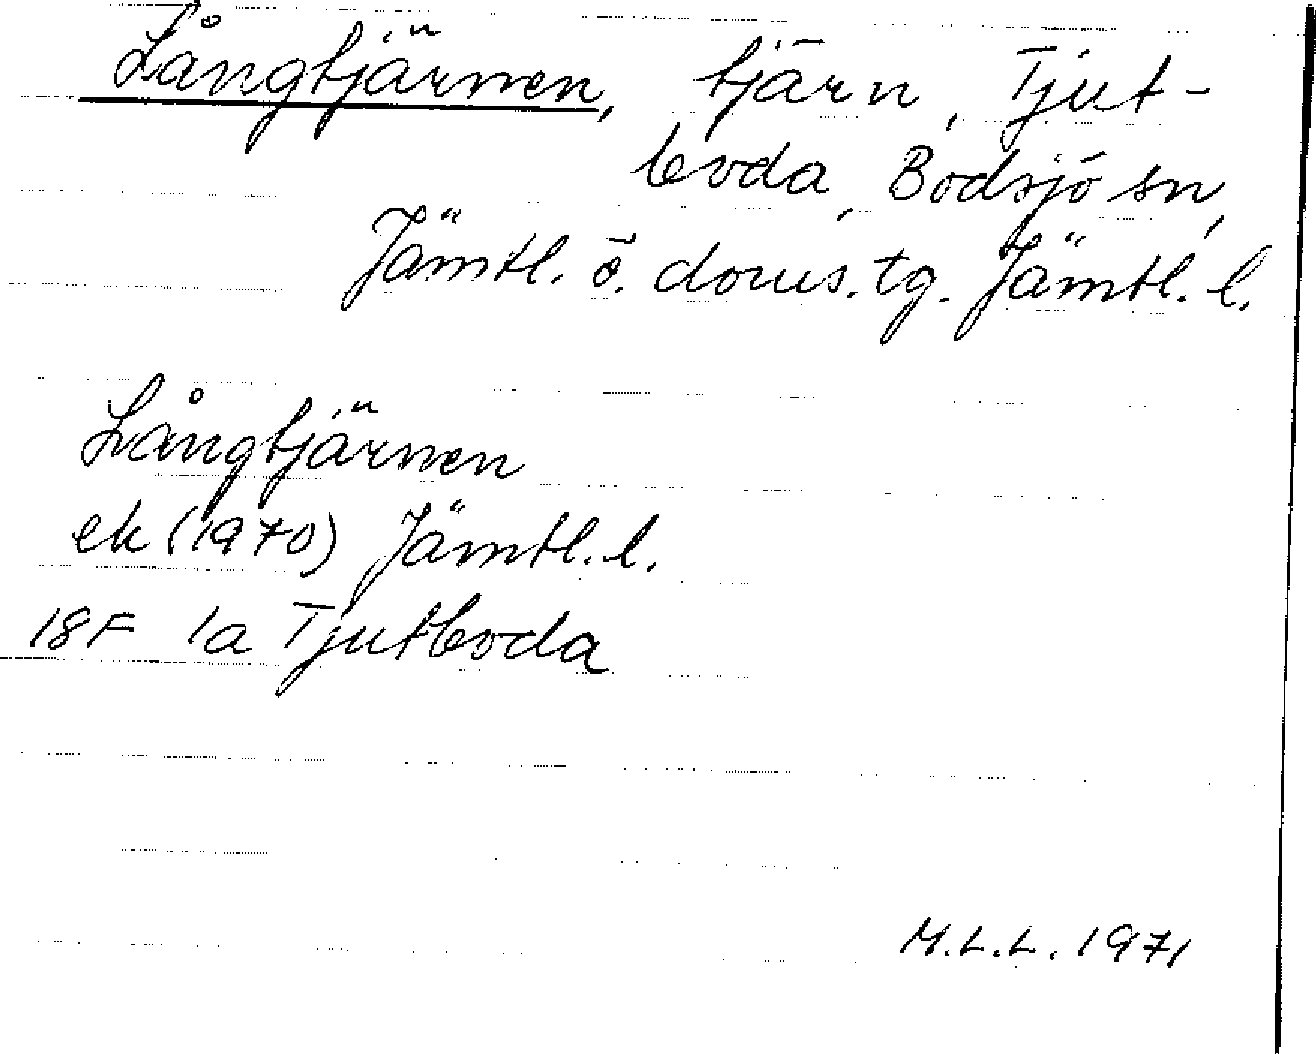 Långtjärnen, tjärn, Tjut-
boda, Bodsjö sn,
Jämtl. ö. doms.tg. Jämtl. l.
Långtjärnen
ek (1970) Jämtl. l.
18F 1a Tjutboda
M.L.L. 1971